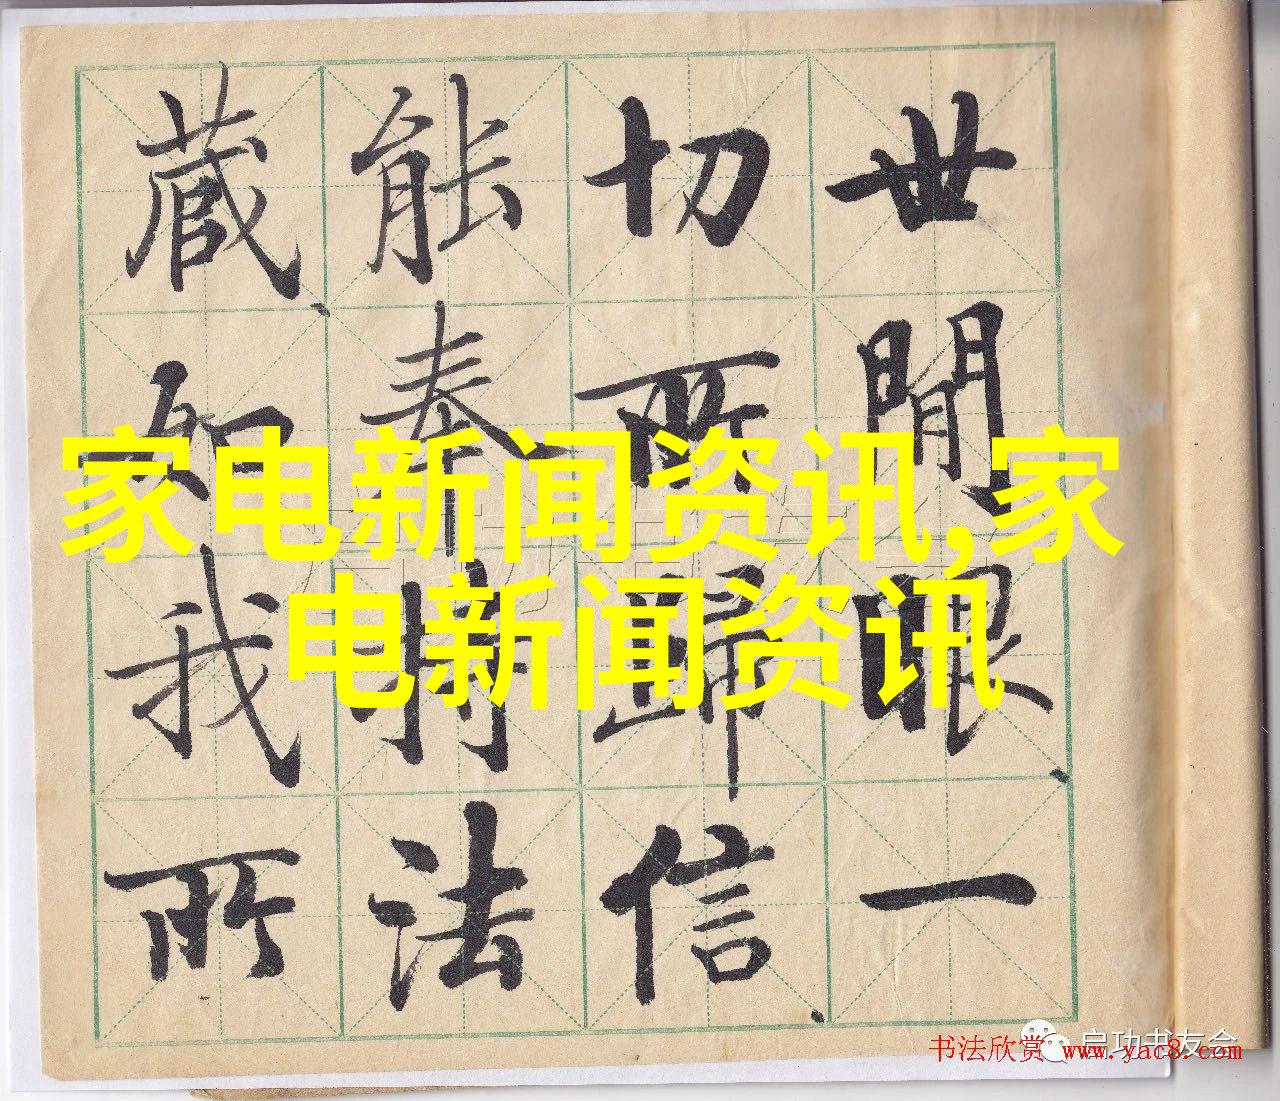 世閒眼一
切所歸信
能奉持法
蔵如我所
家电新闻资讯,家
电新闻资讯
启功书友会
书法欣赏 www.yac8.com